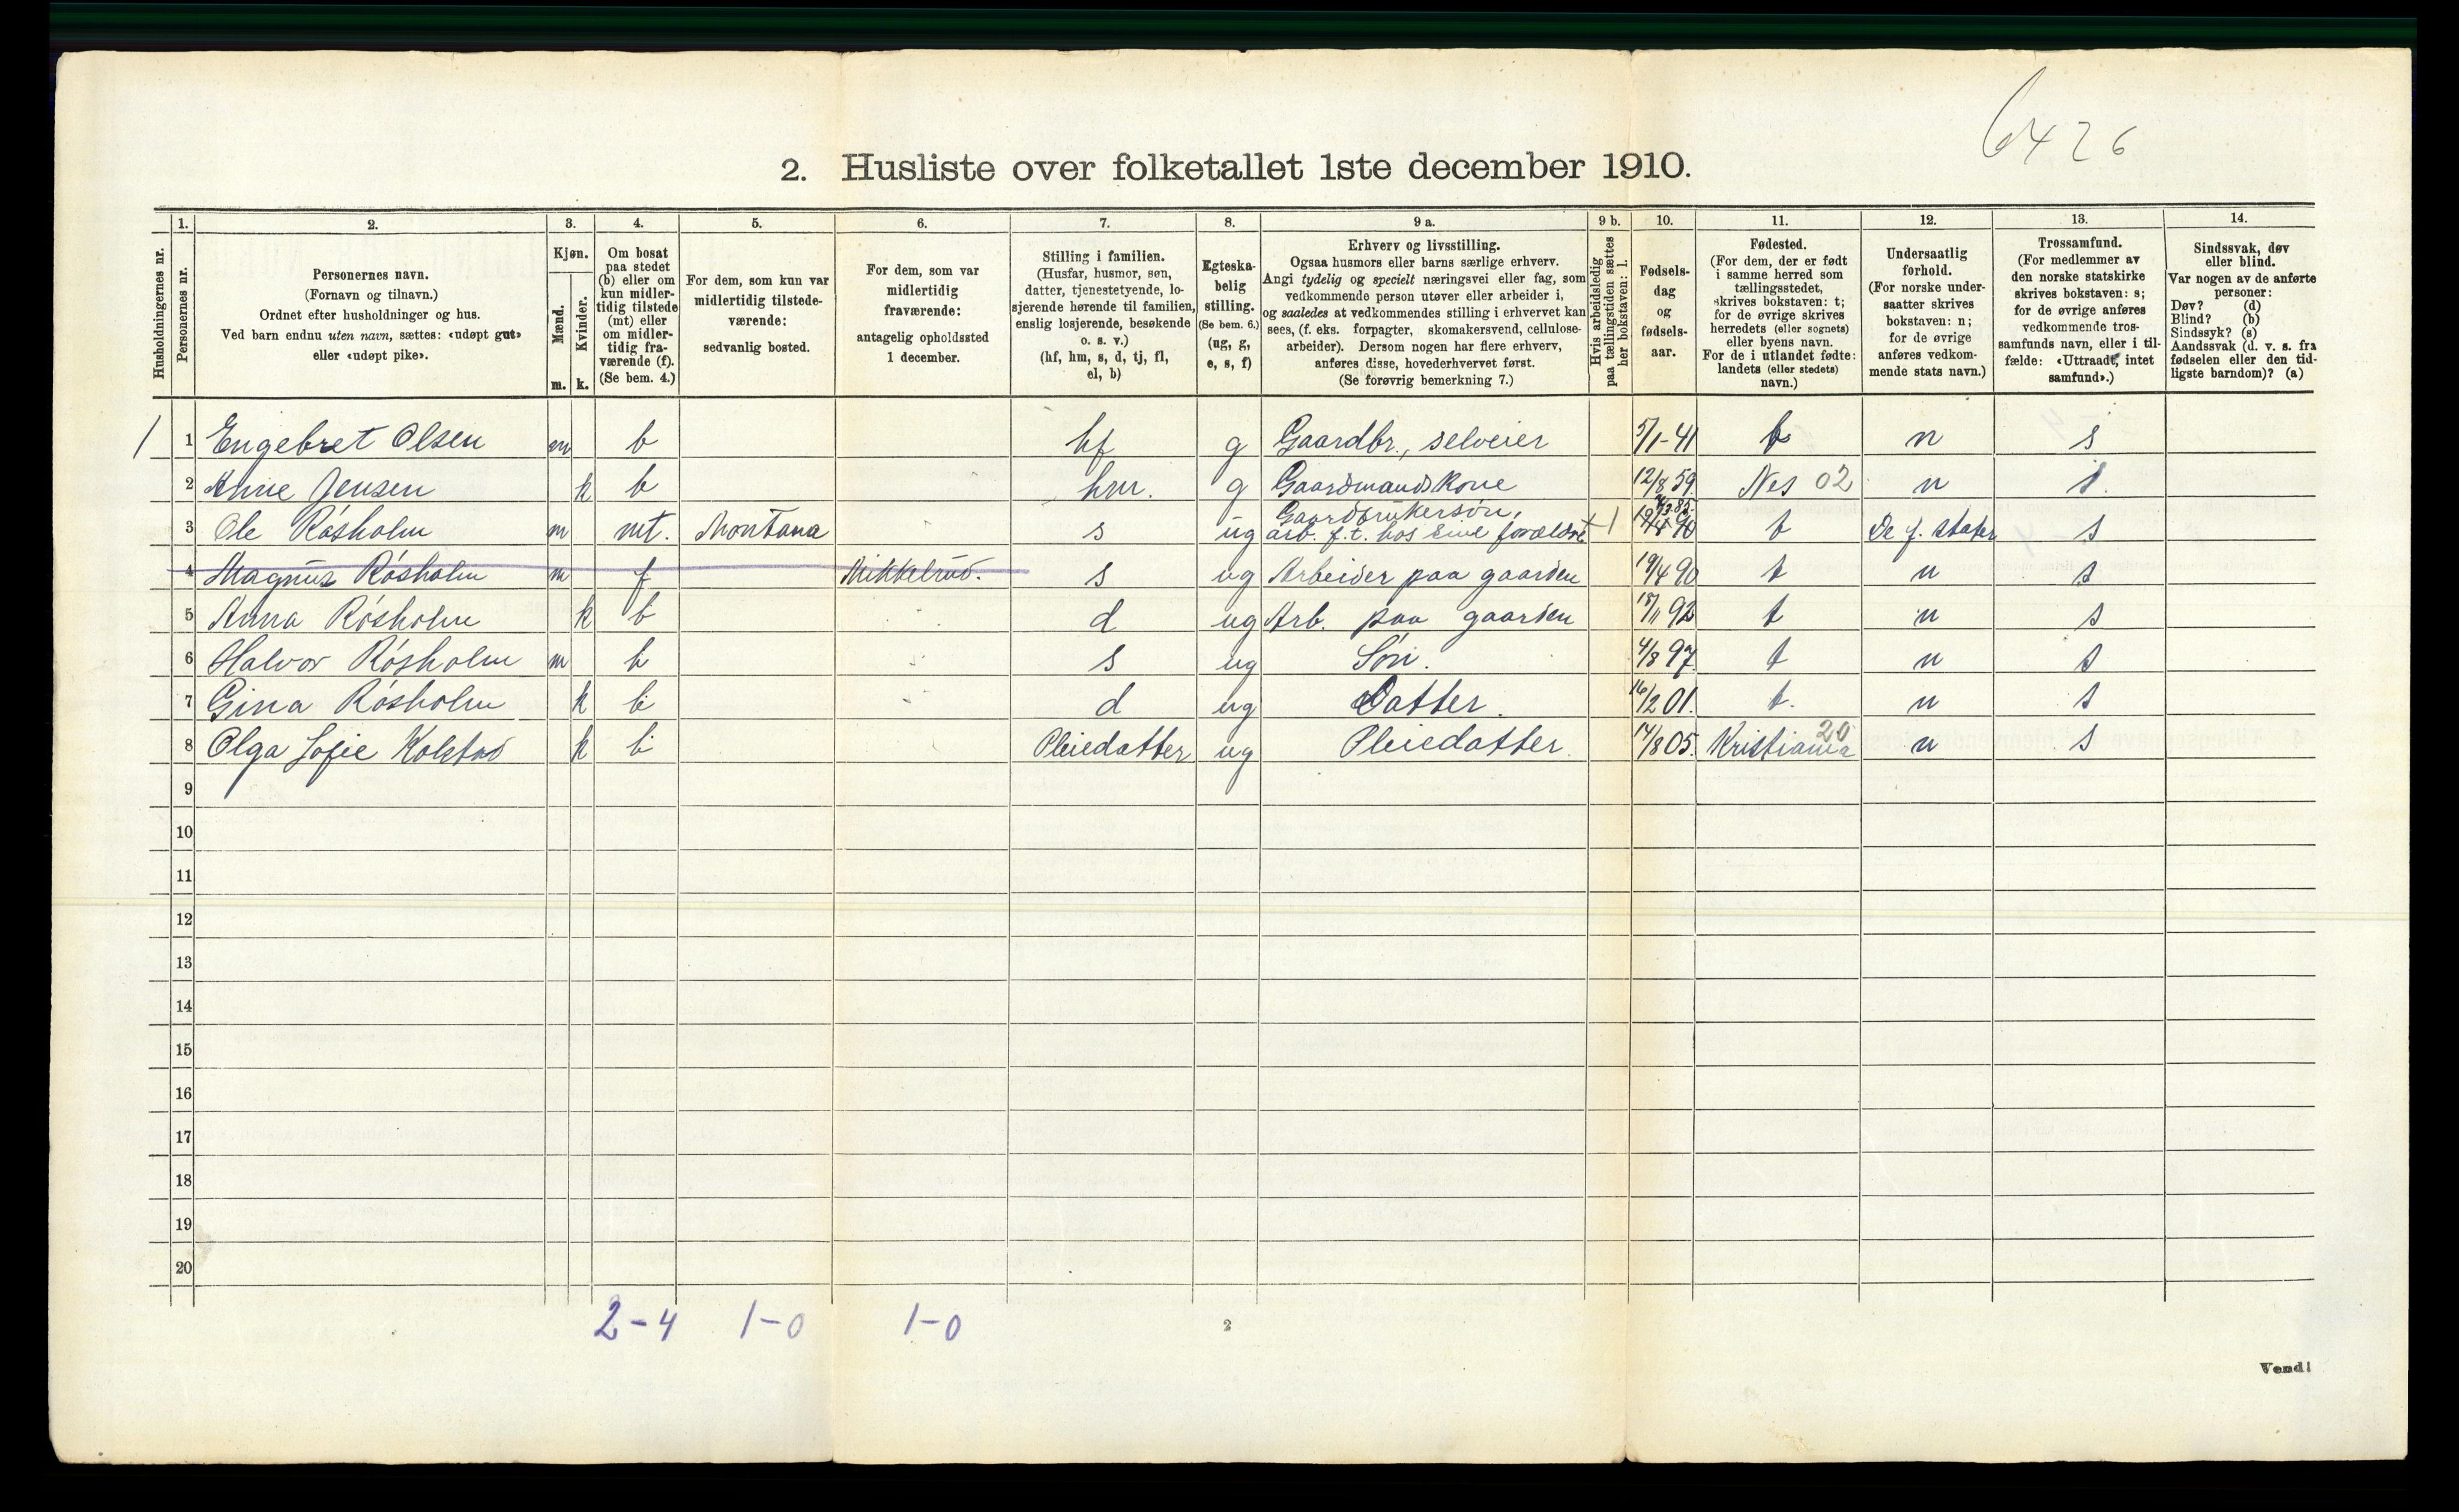 6426
2. Husliste over folketallet 1ste december 1910.
1. 2. 3. 4. 5. 6. 7. 8. 9 a. 9 b. 10. 11. 12. 13. 14.
Husholdningernes nr.
Personernes nr.
Personernes navn.
(Fornavn og tilnavn.)
Ordnet efter husholdninger og hus.
Ved barn endnu uten navn, sættes: «udøpt gut»
eller «udøpt pike».
Kjøn.
Mænd.
Kvinder.
m. k.
Om bosat
paa stedet
(b) eller om
kun midler-
tidig tilstede
(mt) eller
om midler-
tidig fra-
værende (f).
(Se bem. 4.)
For dem, som kun var
midlertidig tilstede-
værende:
sedvanlig bosted.
For dem, som var
midlertidig
fraværende:
antagelig opholdssted
1 december.
Stilling i familien.
(Husfar, husmor, søn,
datter, tjenestetyende, lo-
sjerende hørende til familien,
enslig losjerende, besøkende
o. s. v.)
(hf, hm, s, d, tj, fl,
el, b)
Egteska-
belig
stilling.
(Se bem. 6.)
(ug, g,
e, s, f)
Erhverv og livsstilling.
Ogsaa husmors eller barns særlige erhverv.
Angi tydelig og specielt næringsvei eller fag, som
vedkommende person utøver eller arbeider i,
og saaledes at vedkommendes stilling i erhvervet kan
sees, (f. eks. forpagter, skomakersvend, cellulose-
arbeider). Dersom nogen har flere erhverv,
anføres disse, hovederhvervet først.
(Se forøvrig bemerkning 7.)
Hvis arbeidsledig
paa tællingstiden sættes
her bokstaven: l.
Fødsels-
dag
og
fødsels-
aar.
Fødested.
(For dem, der er født
i samme herred som
tællingsstedet,
skrives bokstaven: t;
for de øvrige skrives
herredets (eller sognets)
eller byens navn.
For de i utlandet fødte:
landets (eller stedets)
navn.)
Undersaatlig
forhold.
(For norske under-
saatter skrives
bokstaven: n;
for de øvrige
anføres vedkom-
mende stats navn.)
Trossamfund.
(For medlemmer av
den norske statskirke
skrives bokstaven: s;
for de øvrige anføres
vedkommende tros-
samfunds navn, eller i til-
fælde: «Uttraadt, intet
samfund».)
Sindssvak, døv
eller blind.
Var nogen av de anførte
personer:
Døv? (d)
Blind? (b)
Sindssyk? (s)
Aandssvak (d. v. s. fra
fødselen eller den tid-
ligste barndom)? (a)
1 1 Engebret Olsen m b hf g Gaardbr., selveier 5/1-41 t n s
2 Anne Jensen k b hm. g Gaardmands Kone 12/8 59. Nes 02 n s.
3 Ole Rösholm m mt. Montana s ug Gaardbrukersön, arb. f.t. hos sine forældre t De f. stater s
4 Magnus Rösholm m f Mikkelrud. s ug Arbeider paa gaarden 19/4 90 t n s
5 Anna Rösholm k b d ug Arb. paa gaarden 18/11 92 t n s
6 Halvor Rösholm m b s ug Sön. 4/8 97. t n s
7 Gina Rösholm k b d ug Datter. 16/2 01. t. n s
8 Olga Sofie Kolstad k b Pleiedatter ug Pleiedatter. 14/8 05. Kristiania 20 n s
9
10
11
12
13
14
15
16
17
18
19
20
2-4 1-0 1-0
2
Vend!